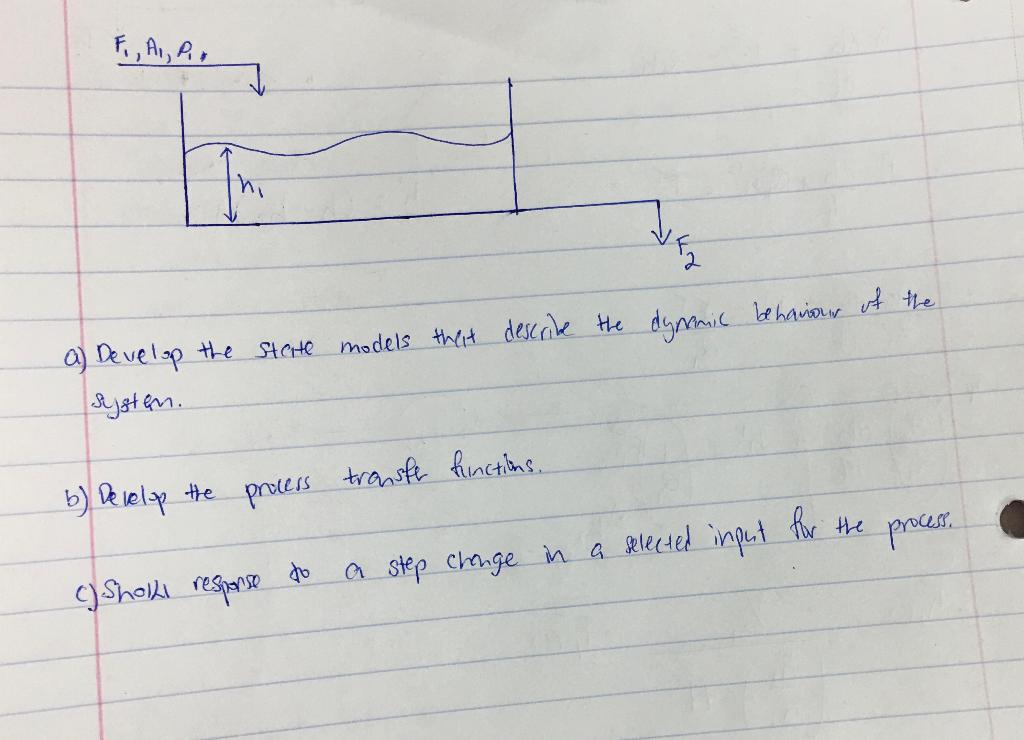 F₁, A₁, ρ₁,
h₁
F₂
a) Develop the state models that describe the dynamic behaviour of the
system.
b) Develop the process transfer functions.
c) Show response to a step change in a selected input for the process.